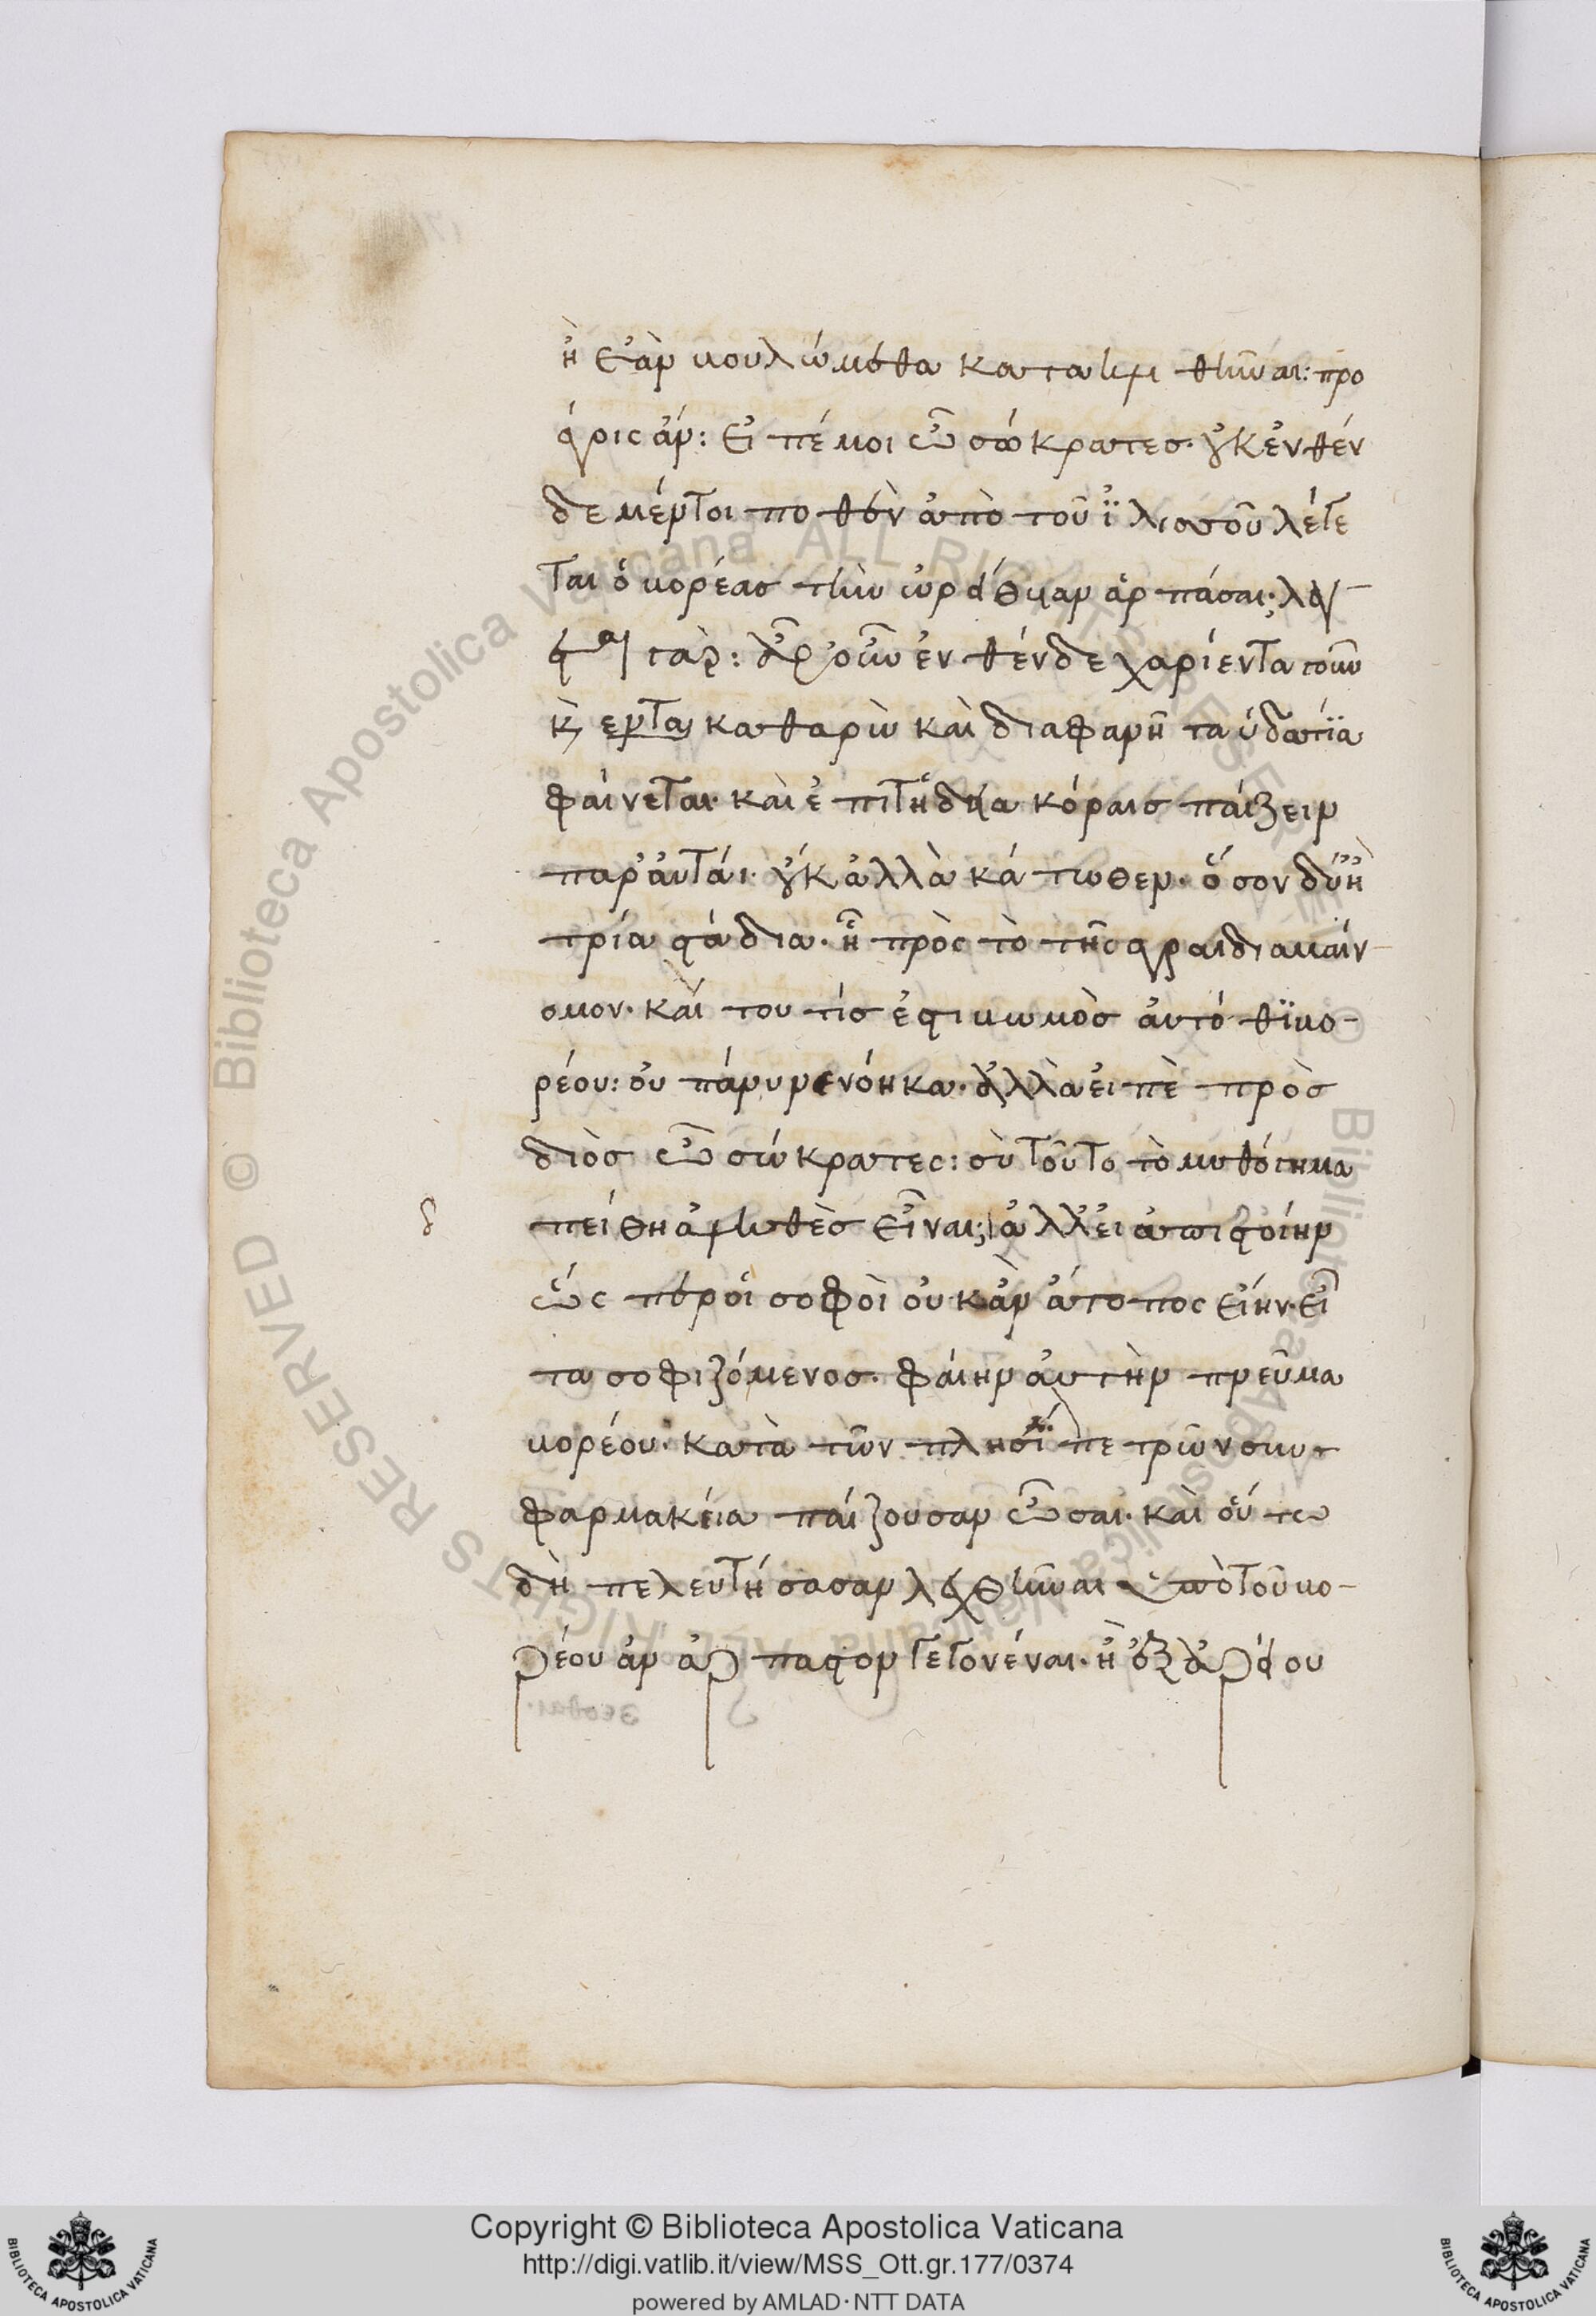 ἢ ἐὰν βουλώμεθα κατακλιθῆναι: προ
άγοις ἄν: εἰπέ μοι ὦ σώκρατες· οὐκ ἐνθέν
δε μέντοι ποθὲν ἀπὸ τοῦ ἰλισσοῦ λέγε
ται ὁ βορέας τὴν ὠρείθυιαν ἁρπάσαι; λέγ
εται γάρ: ἆρ' οὖν ἐνθένδε χαρίεντα γοῦν
καὶ καθαρὰ καὶ διαφανῆ τὰ ὑδάτια
φαίνεται· καὶ ἐπιτήδεια κόραις παίζειν
παρ' αὐτά: οὔκ ἀλλὰ κάτωθεν· ὅσον δύ' ἢ
τρία στάδια· ἧ πρὸς τὸ τῆς ἄγρας διαβαίν
ομεν· καί που τίς ἐστι βωμὸς αὐτόθι βο-
ρέου: οὐ πάνυ νενόηκα· ἀλλὰ εἰπὲ πρὸς
διὸς ὦ σώκρατες: σὺ τοῦτο τὸ μυθολόγημα
πείθῃ ἀληθὲς εἶναι; ἀλλ' εἰ ἀπιστοίην
ὥσπερ οἱ σοφοὶ οὐκ ἂν ἄτοπος εἴην· εἶ
τα σοφιζόμενος· φαίην αὐτὴν πνεῦμα
βορέου· κατὰ τῶν πλησίον πετρῶν σὺν
φαρμακεία παίζουσαν ὦσαι· καὶ οὕτω
δὴ τελευτήσασαν λεχθῆναι ὑπὸ τοῦ βο-
ρέου ἀνάρπαστον γεγονέναι· ἢ ἐξ ἀρείου
Copyright © Biblioteca Apostolica Vaticana
http://digi.vatlib.it/view/MSS_Ott.gr.177/0374
powered by AMLAD·NTT DATA